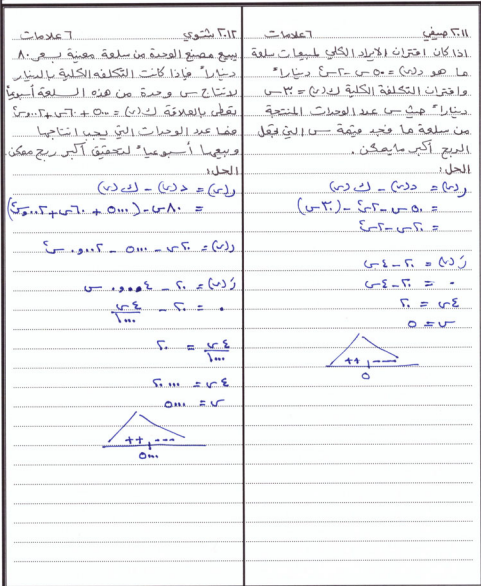 ٢٠١١ صيفي ٦ علامات
اذا كان اقتران الايراد الكلي لمبيعات سلعة
ما هو د(س) = ٥٠س - ٢س² ديناراً
واقتران التكلفة الكلية ك(س) = ٣٠س
ديناراً حيث س عدد الوحدات المنتجة
من سلعة ما فجد قيمة س التي تجعل
الربح أكبر ما يمكن.
الحل:
ر(س) = د(س) - ك(س)
= ٥٠س - ٢س² - (٣٠س)
= ٢٠س - ٢س²
رَ(س) = ٢٠ - ٤س
٠ = ٢٠ - ٤س
٤س = ٢٠
س = ٥
++ ---
٥
٢٠١٢ شتوي ٦ علامات
يبيع مصنع الوحدة من سلعة معينة بسعر ٨٠
ديناراً فإذا كانت التكلفه الكلية بالدينار
لانتاج س وحدة من هذه السلعة أسبوعياً
تعطى بالعلاقة ك(س) = ٥٠٠٠ + ٦٠س + ٠٠٢و٠س²
فما عدد الوحدات التي يجب انتاجها
وبيعها أسبوعياً لتحقيق أكبر ربح ممكن.
الحل:
ر(س) = د(س) - ك(س)
= ٨٠س - (٥٠٠٠ + ٦٠س + ٠٠٢و٠س²)
ر(س) = ٢٠س - ٥٠٠٠ - ٠٠٢و٠س²
رَ(س) = ٢٠ - ٠٠٤و٠س
٠ = ٢٠ - ٤س/١٠٠٠
٤س/١٠٠٠ = ٢٠
٤س = ٢٠٠٠٠
س = ٥٠٠٠
++ ---
٥٠٠٠